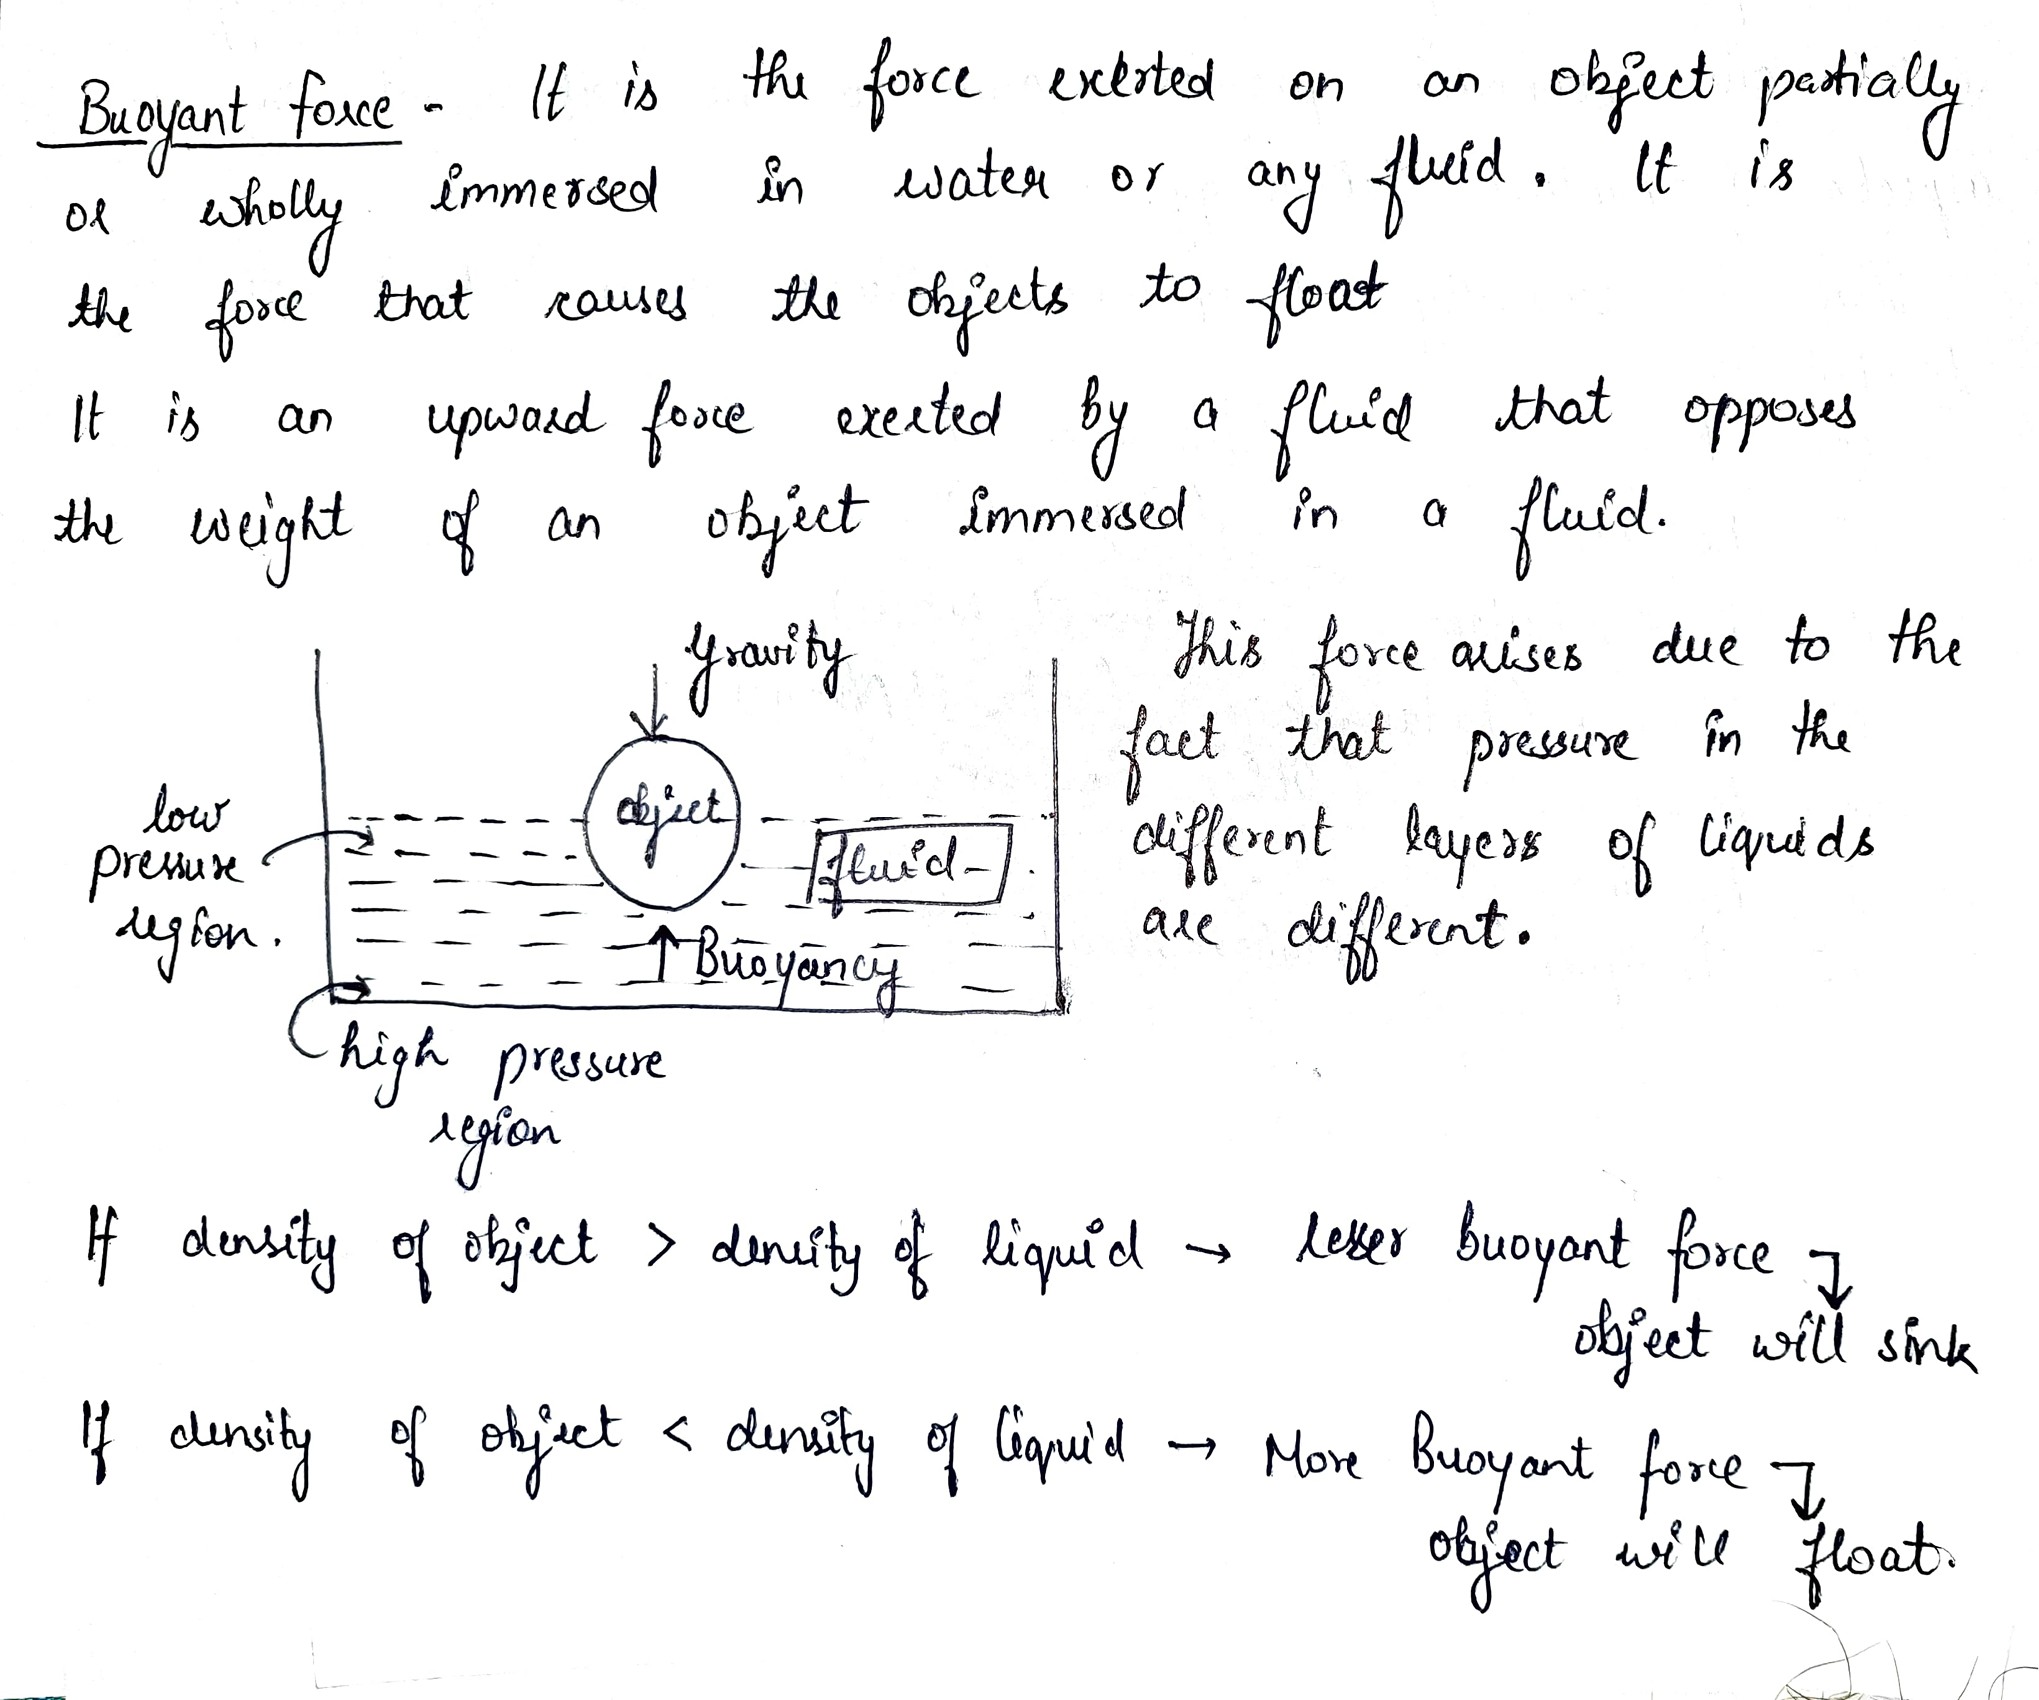 Buoyant force - It is the force exerted on an object partially
or wholly immersed in water or any fluid. It is
the force that causes the objects to float
It is an upward force exerted by a fluid that opposes
the weight of an object immersed in a fluid.
Gravity
object
fluid
Buoyancy
low
pressure
region.
high pressure
region
This force arises due to the
fact that pressure in the
different layers of liquids
are different.
If density of object > density of liquid → lesser buoyant force
object will sink
If density of object < density of liquid → More Buoyant force
object will float.